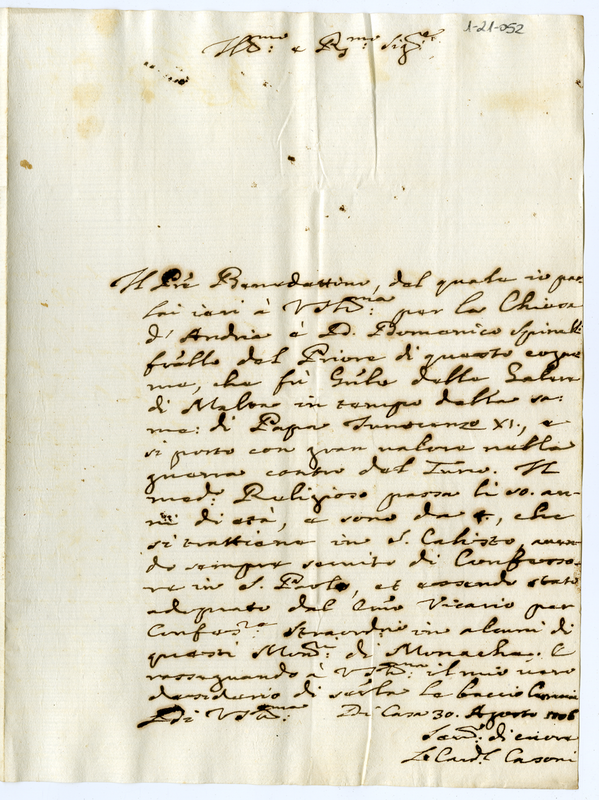 1-21-052
Ill.mo e R.mo Sig.re
Il Pre Benedettino, del quale io par
lai ieri à V.S.Ill.ma per la Chiesa
d'Andria è D. Domenico Spinelli
frãllo del Priore di questo cogno
me, che fù Gñle delle Galere
di Malta in tempo della sa.
me: di Papa Innocenzo XI., e
si portò con gran valore nella
guerra contro del Turco. Il
med.o Religioso passa li 50. an-
ni di età, e sono da che
si trattiene in S. Calisto, aven
do sempre servito di Confesso-
re in S. Paolo, et essendo stato
adoprato dal Vicario per
Confes.re straord.rio in alcuni di
questi Mon.ri di Monache. E
rassegnando à V.S.Ill.ma il mio vero
desiderio di servirla le bacio
Di V.S.Ill.ma Di Casa 30. Agosto 1706
Ser.re di cuore
Le Card.l Casoni